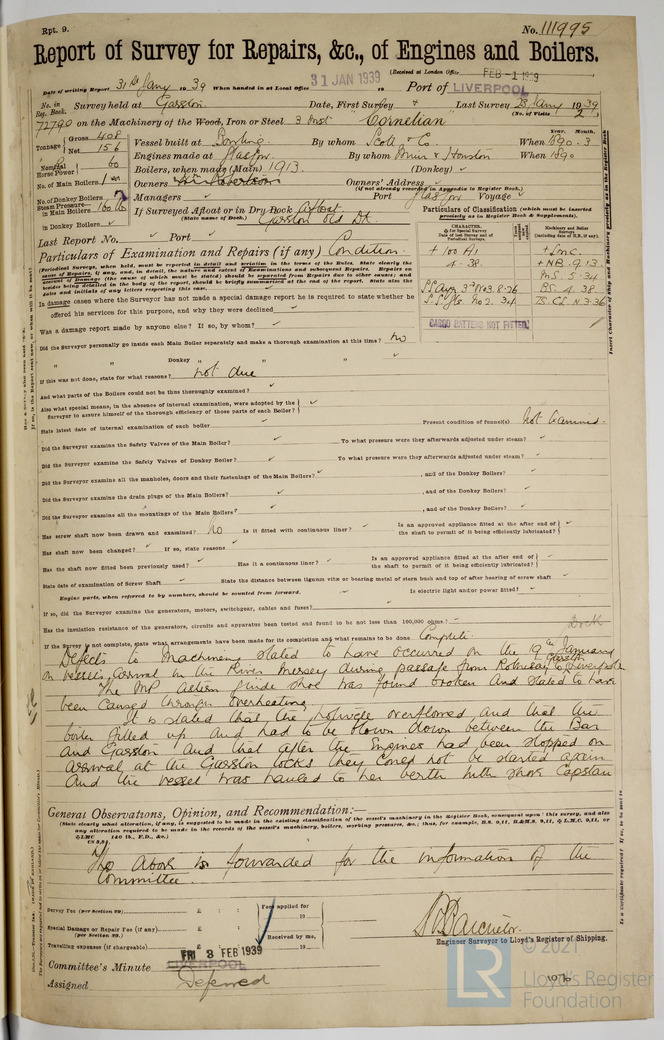 Rpt. 9.
No. 111995
Report of Survey for Repairs, &c., of Engines and Boilers.
(Received at London Office FEB -1 1939
Date of writing Report 31st Jany 1939 When handed in at Local Office 31 JAN 1939 Port of LIVERPOOL
No. in Reg. Book. Survey held at Garston Date, First Survey Last Survey 28 Jany 1939
(No. of Visits 2)
72790 on the Machinery of the Wood, Iron or Steel "Cornelian"
Tonnage Gross 408 Net 156
Vessel built at Bowling By whom Scott & Co. When 1890 . 3
Year. Month.
Engines made at Glasgow By whom Muir & Houston When 1890
Nominal Horse Power 60
Boilers, when made (Main) 1913. (Donkey)
No. of Main Boilers 1
Owners Wm Robertson Owners' Address
(if not already recorded in Appendix to Register Book.)
No. of Donkey Boilers
Managers Port Glasgow Voyage
Steam Pressure in Main Boilers 160 lb
in Donkey Boilers
If Surveyed Afloat or in Dry Dock Afloat
(State name of Dock.) Garston Old Dk
Particulars of Classification (which must be inserted precisely as in Register Book & Supplements).
Last Report No. Port
Particulars of Examination and Repairs (if any) Condition.
+ 100 A1
4 . 38
+ LMC
+ NB . 9.13
MS 5.34
BS. 4.38
CARGO BATTENS NOT FITTED.
In damage cases where the Surveyor has not made a special damage report he is required to state whether he
offered his services for this purpose, and why they were declined
Was a damage report made by anyone else? If so, by whom?
Did the Surveyor personally go inside each Main Boiler separately and make a thorough examination at this time? No
" " Donkey " " "
If this was not done, state for what reasons? not due
And what parts of the Boilers could not be thus thoroughly examined?
Also what special means, in the absence of internal examination, were adopted by the
Surveyor to assure himself of the thorough efficiency of those parts of each Boiler?
State latest date of internal examination of each boiler Present condition of funnel(s) not examined.
Did the Surveyor examine the Safety Valves of the Main Boiler? To what pressure were they afterwards adjusted under steam?
Did the Surveyor examine the Safety Valves of Donkey Boiler? To what pressure were they afterwards adjusted under steam?
Did the Surveyor examine all the manholes, doors and their fastenings of the Main Boilers? , and of the Donkey Boilers?
Did the Surveyor examine the drain plugs of the Main Boilers? , and of the Donkey Boilers?
Did the Surveyor examine all the mountings of the Main Boilers? , and of the Donkey Boilers?
Has screw shaft now been drawn and examined? No Is it fitted with continuous liner? Is an approved appliance fitted at the after end of the shaft to permit of it being efficiently lubricated?
Has shaft now been changed? If so, state reasons
Has the shaft now fitted been previously used? Has it a continuous liner? Is an approved appliance fitted at the after end of the shaft to permit of it being efficiently lubricated?
State date of examination of Screw Shaft State the distance between lignum vitæ or bearing metal of stern bush and top of after bearing of screw shaft
Engine parts, when referred to by numbers, should be counted from forward. Is electric light and/or power fitted?
If so, did the Surveyor examine the generators, motors, switchgear, cables and fuses?
Has the insulation resistance of the generators, circuits and apparatus been tested and found to be not less than 100,000 ohms?
If the Survey is not complete, state what arrangements have been made for its completion and what remains to be done Complete.
Defects to Machinery stated to have occurred on the 19th January
on vessels arrival in the River Mersey during passage from Rothesay to Liverpool
The MP Astern guide shoe was found broken and stated to have
been caused through overheating.
It is stated that the hotwell overflowed and that the
boiler filled up and had to be blown down between the Bar
and Garston and that after the Engines had been stopped on
arrival at the Garston locks they could not be started again
and the vessel was hauled to her berth with shore Capstan
General Observations, Opinion, and Recommendation:—
(State clearly what alteration, if any, is suggested to be made in the existing classification of the vessel's machinery in the Register Book, consequent upon this survey, and also
any alteration required to be made in the records of the vessel's machinery, boilers, working pressures, &c.; thus, for example, B.S. 9,11, B.&M.S. 9,11, L.M.C. 9,11, or
140 lb., F.D., &c.)
The above is forwarded for the information of the
Committee.
Survey Fee (per Section 29) £ : : Fees applied for
19
Special Damage or Repair Fee (if any) £ : :
(per Section 29.)
Received by me,
Travelling expenses (if chargeable) £ : : 19
Engineer Surveyor to Lloyd's Register of Shipping.
Committee's Minute FRI 3 FEB 1939
LIVERPOOL
Assigned Deferred
LR
© 2021
Lloyd's Register
Foundation